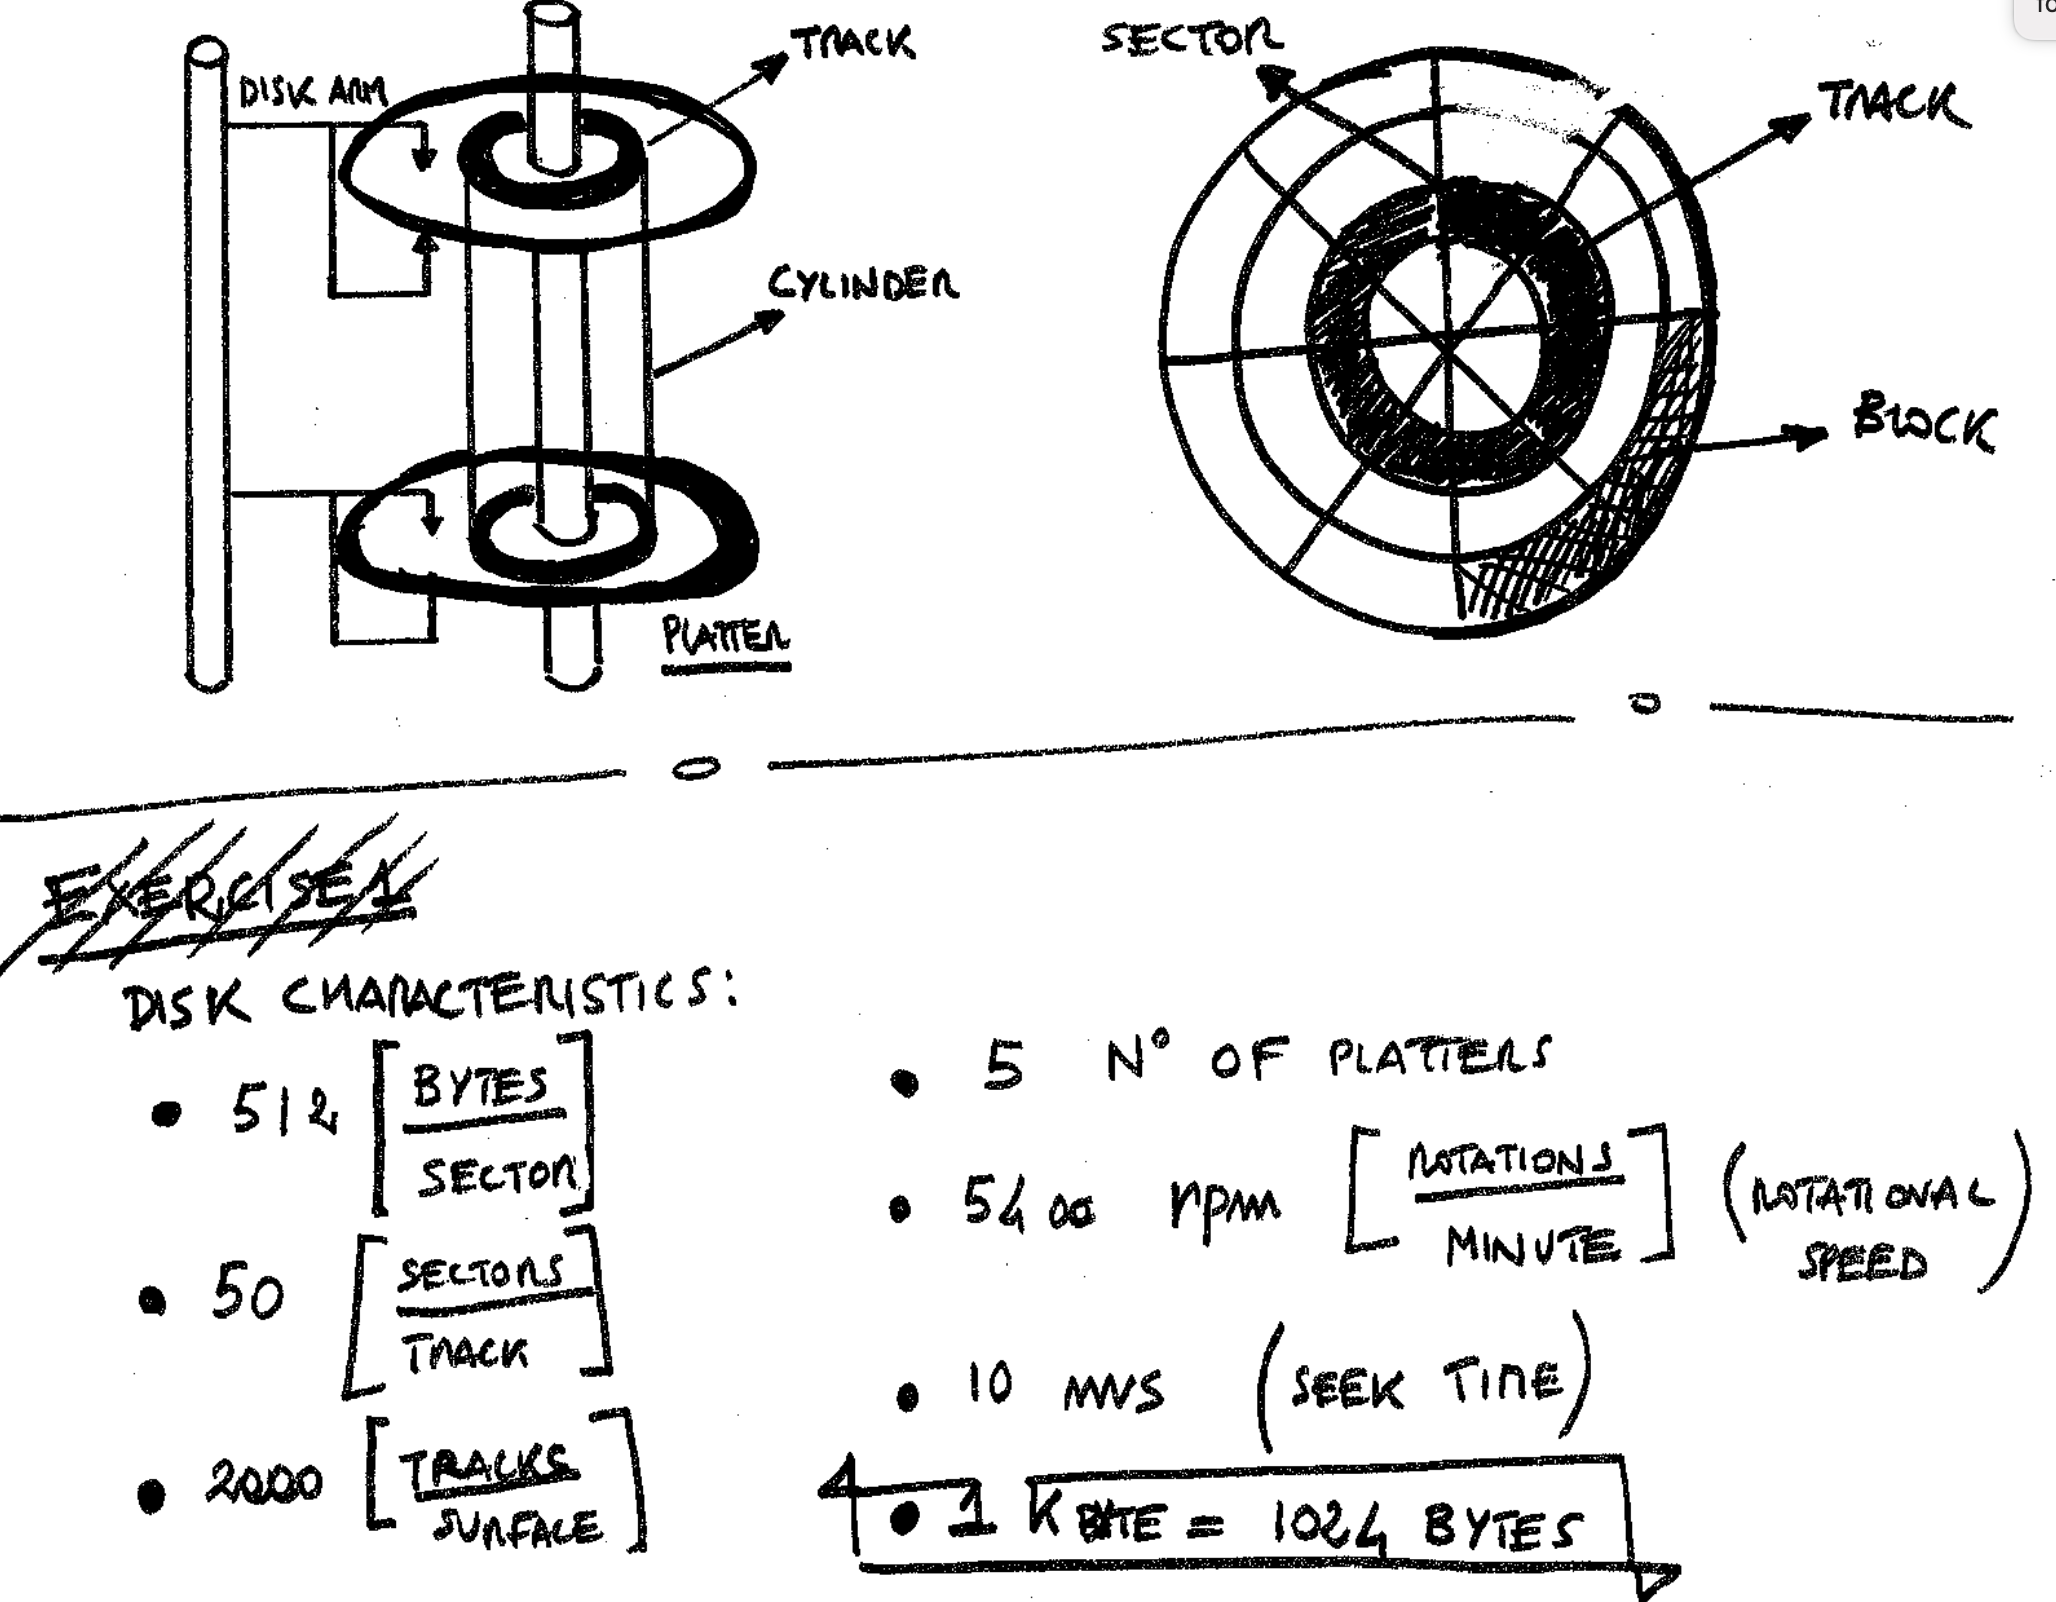 DISK ARM
TRACK
CYLINDER
PLATTER
SECTOR
TRACK
BLOCK
EXERCISE 1
DISK CHARACTERISTICS:
• 512 [BYTES
SECTOR]
• 50 [SECTORS
TRACK]
• 2000 [TRACKS
SURFACE]
• 5 N° OF PLATTERS
• 5400 rpm [ROTATIONS
MINUTE] (ROTATIONAL
SPEED)
• 10 (SEEK TIME)
• 1 KBYTE = 1024 BYTES